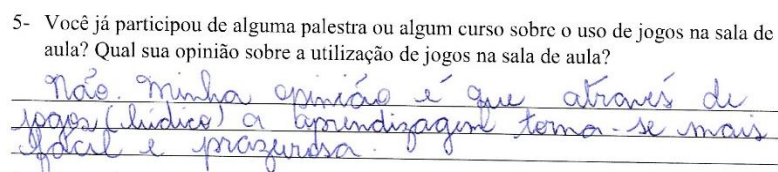 5- Você já participou de alguma palestra ou algum curso sobre o uso de jogos na sala de
aula? Qual sua opinião sobre a utilização de jogos na sala de aula?
Não. Minha opinião é que através de
jogos (lúdico) a aprendizagem torna-se mais
fácil e prazerosa.